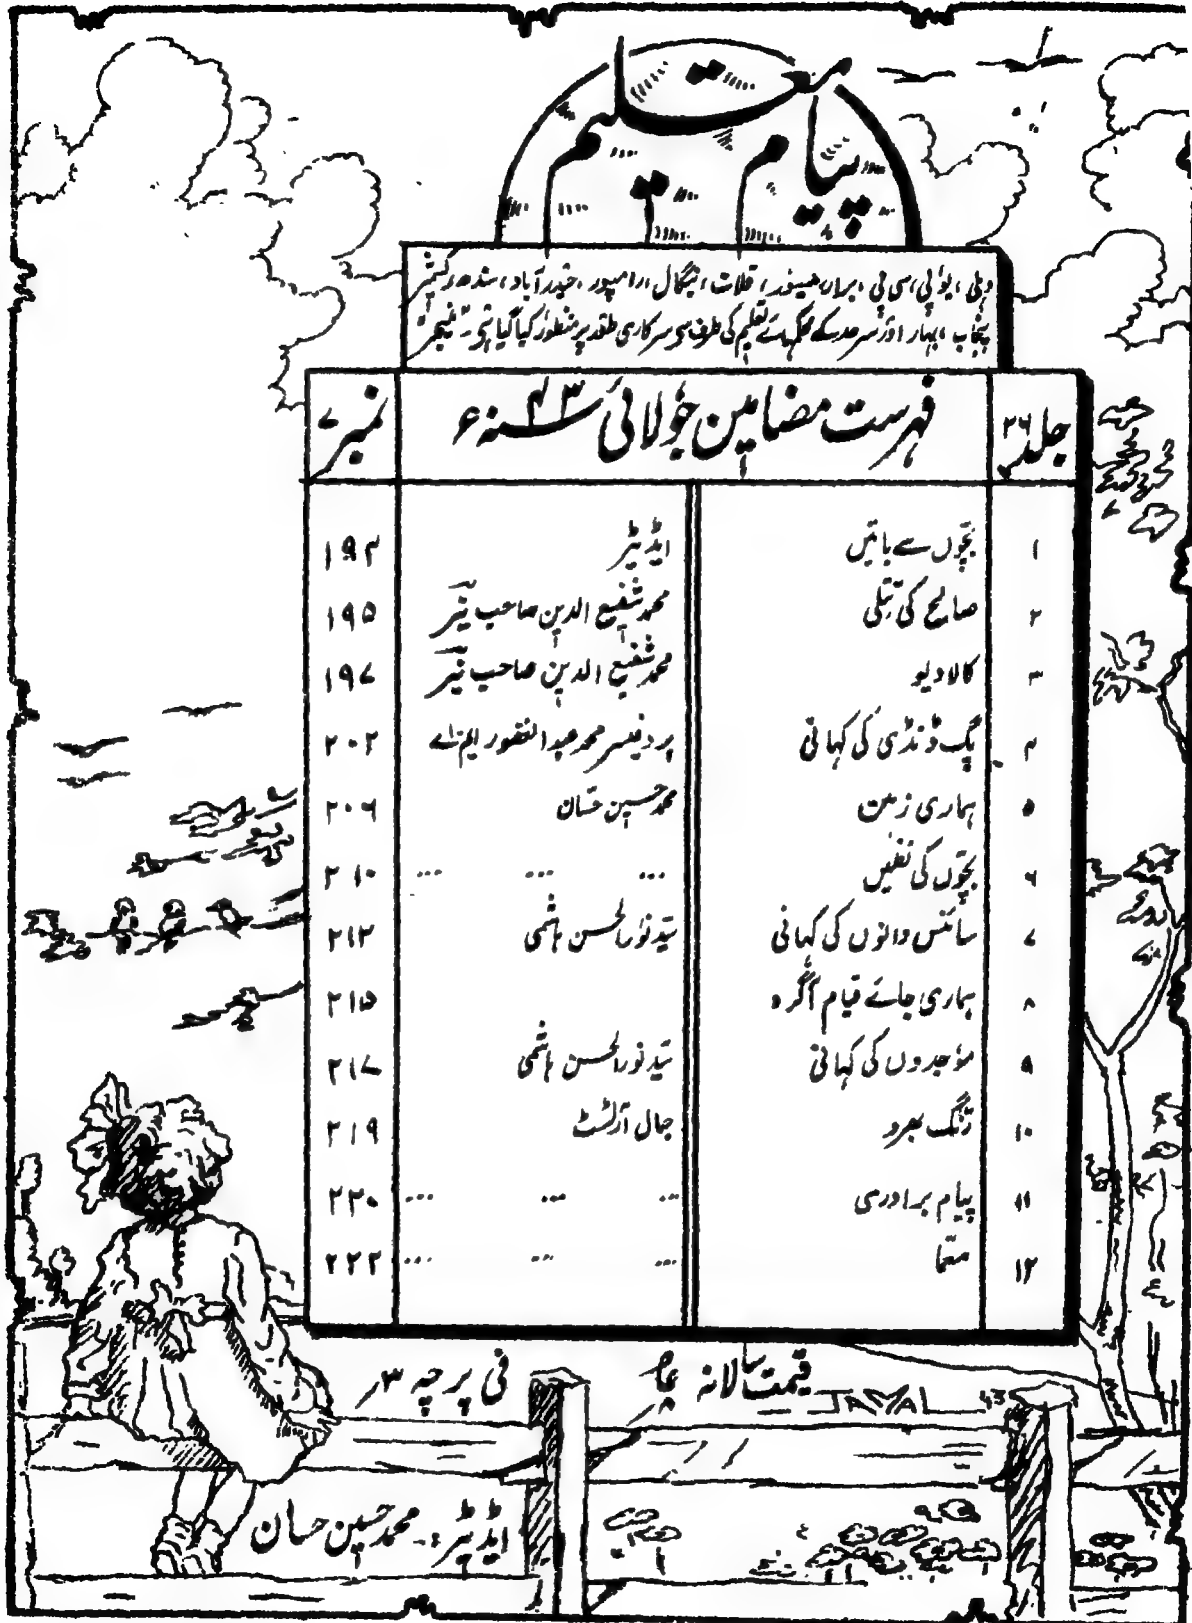 پیام تعلیم
دہلی، یوپی، سی پی، برار، میسور، قلات، بنگال، رامپور، حیدرآباد، سندھ، کشمیر
پنجاب، بہار اور سرحد کے محکمہائے تعلیم کی طرف سے سرکاری طور پر منظور کیا گیا ہے
جلد ۲۶ فہرست مضامین جولائی ۴۳ سنہ ء نمبر ۷
۱ بچّوں سے باتیں ایڈیٹر ۱۹۴
۲ صالح کی تتلی محمد شفیع الدین صاحب نیّر ۱۹۵
۳ کالا دیو محمد شفیع الدین صاحب نیّر ۱۹۷
۴ پگ ڈنڈی کی کہانی پروفیسر محمد عبدالغفور ایم اے ۲۰۲
۵ ہماری زمین محمد حسین حسّان ۲۰۶
۶ بچّوں کی نظمیں ... ... ... ۲۱۰
۷ سائنس دانوں کی کہانی سیّد نورالحسن ہاشمی ۲۱۲
۸ ہماری جائے قیام آگرہ ۲۱۵
۹ موجدوں کی کہانی سیّد نورالحسن ہاشمی ۲۱۷
۱۰ رنگ بھرو جمال آرٹسٹ ۲۱۹
۱۱ پیام برادری ... ... ... ۲۲۰
۱۲ معمّا ... ... ... ۲۲۲
قیمت سالانہ فی پرچہ ۳؍
JAMAL 43
ایڈیٹر:۔ محمد حسین حسان